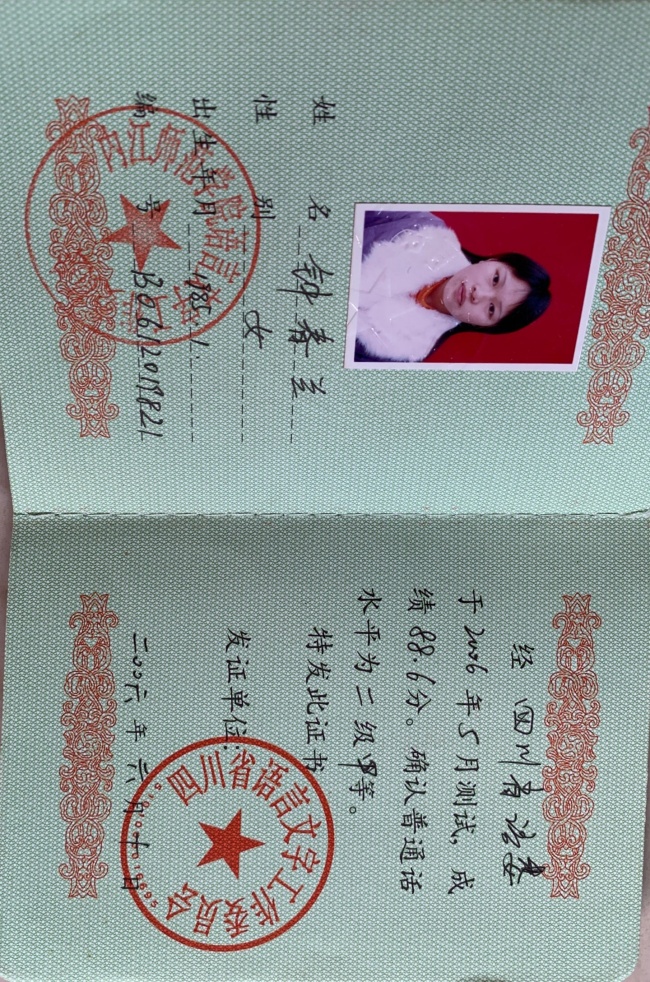 姓 名 钟春兰
性 别 女
出生年月 1985.1.
编 号 B0612017821
内江师范学院语言
经 四川省语委
于2006年5月测试，成
绩88.6分。确认普通话
水平为二级甲等。
特发此证书
发证单位：
四川省语言文字工作委员会
二〇〇六年六月十日